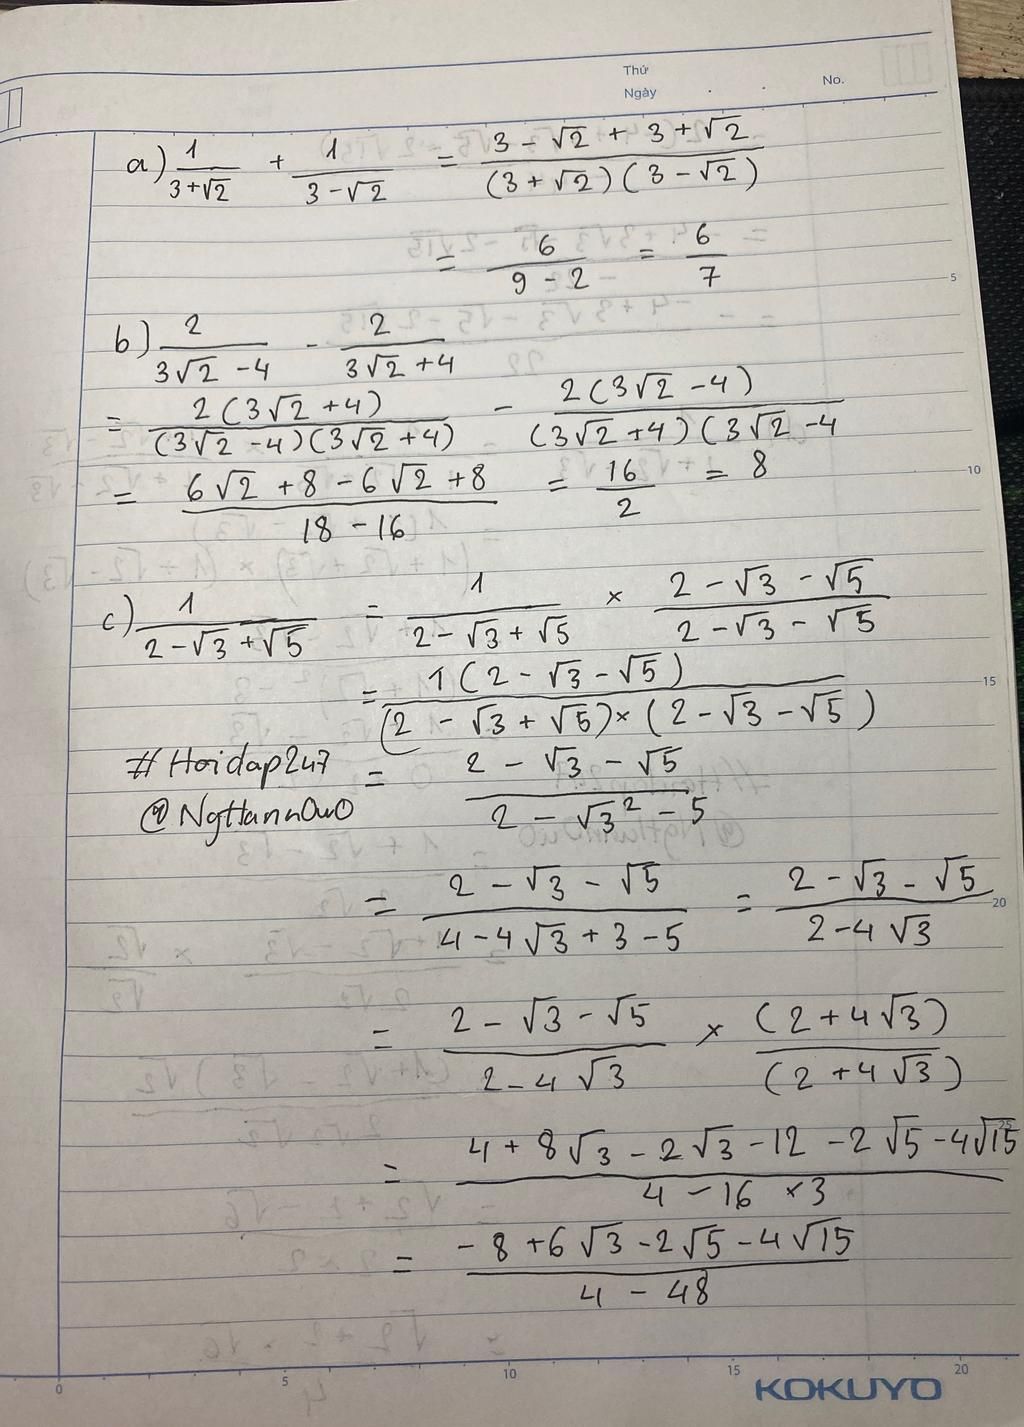 Thứ
Ngày . . No.
a) 1/(3+√2) + 1/(3-√2) = (3 - √2 + 3 + √2)/((3 + √2)(3 - √2))
= 6/(9 - 2) = 6/7
5
b) 2/(3√2 - 4) - 2/(3√2 + 4)
= 2(3√2 + 4)/((3√2 - 4)(3√2 + 4)) - 2(3√2 - 4)/((3√2 + 4)(3√2 - 4
= (6√2 + 8 - 6√2 + 8)/(18 - 16) = 16/2 = 8
10
c) 1/(2 - √3 + √5) = 1/(2 - √3 + √5) × (2 - √3 - √5)/(2 - √3 - √5)
= 1(2 - √3 - √5)/((2 - √3 + √5) × (2 - √3 - √5))
15
#Hoidap247
@NgHannOwO
= (2 - √3 - √5)/(2 - √3² - 5)
= (2 - √3 - √5)/(4 - 4√3 + 3 - 5) = (2 - √3 - √5)/(2 - 4√3)
20
= (2 - √3 - √5)/(2 - 4√3) × (2 + 4√3)/(2 + 4√3)
= (4 + 8√3 - 2√3 - 12 - 2√5 - 4√15)/(4 - 16 × 3)
25
= (-8 + 6√3 - 2√5 - 4√15)/(4 - 48)
0 5 10 15 20
KOKUYO